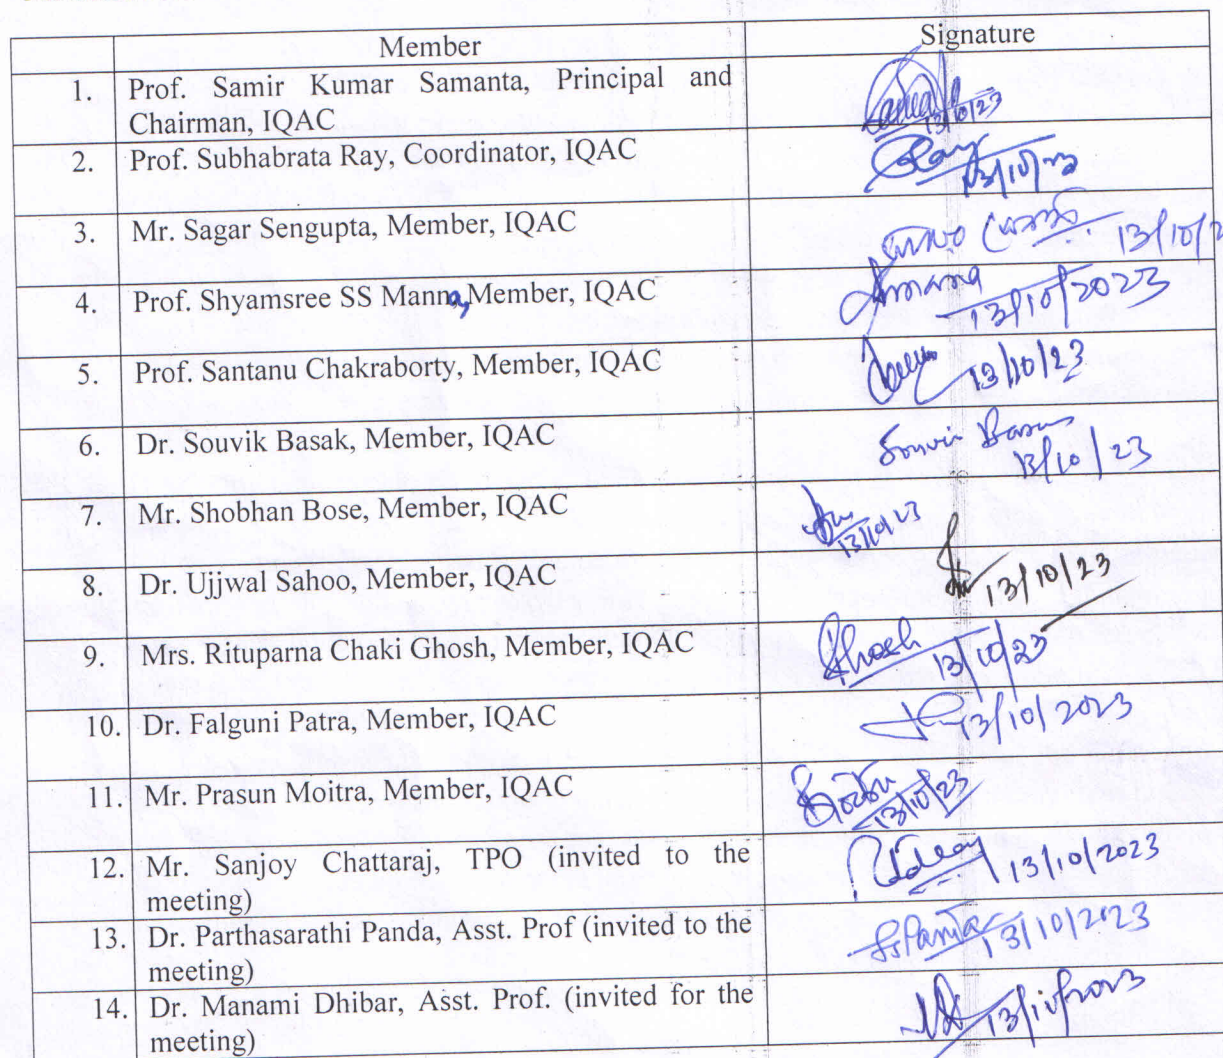 Member Signature
1. Prof. Samir Kumar Samanta, Principal and
Chairman, IQAC
13/10/23
2. Prof. Subhabrata Ray, Coordinator, IQAC Ray
13/10/23
3. Mr. Sagar Sengupta, Member, IQAC
13/10/2
4. Prof. Shyamsree SS Manna, Member, IQAC Smanna
13/10/2023
5. Prof. Santanu Chakraborty, Member, IQAC
13/10/23
6. Dr. Souvik Basak, Member, IQAC Souvik Basak
13/10/23
7. Mr. Shobhan Bose, Member, IQAC
13/10/23
8. Dr. Ujjwal Sahoo, Member, IQAC 13/10/23
9. Mrs. Rituparna Chaki Ghosh, Member, IQAC Ghosh
13/10/23
10. Dr. Falguni Patra, Member, IQAC 13/10/2023
11. Mr. Prasun Moitra, Member, IQAC
13/10/23
12. Mr. Sanjoy Chattaraj, TPO (invited to the
meeting) 13/10/2023
13. Dr. Parthasarathi Panda, Asst. Prof (invited to the
meeting) Panda 13/10/2023
14. Dr. Manami Dhibar, Asst. Prof. (invited for the
meeting) 13/10/2023